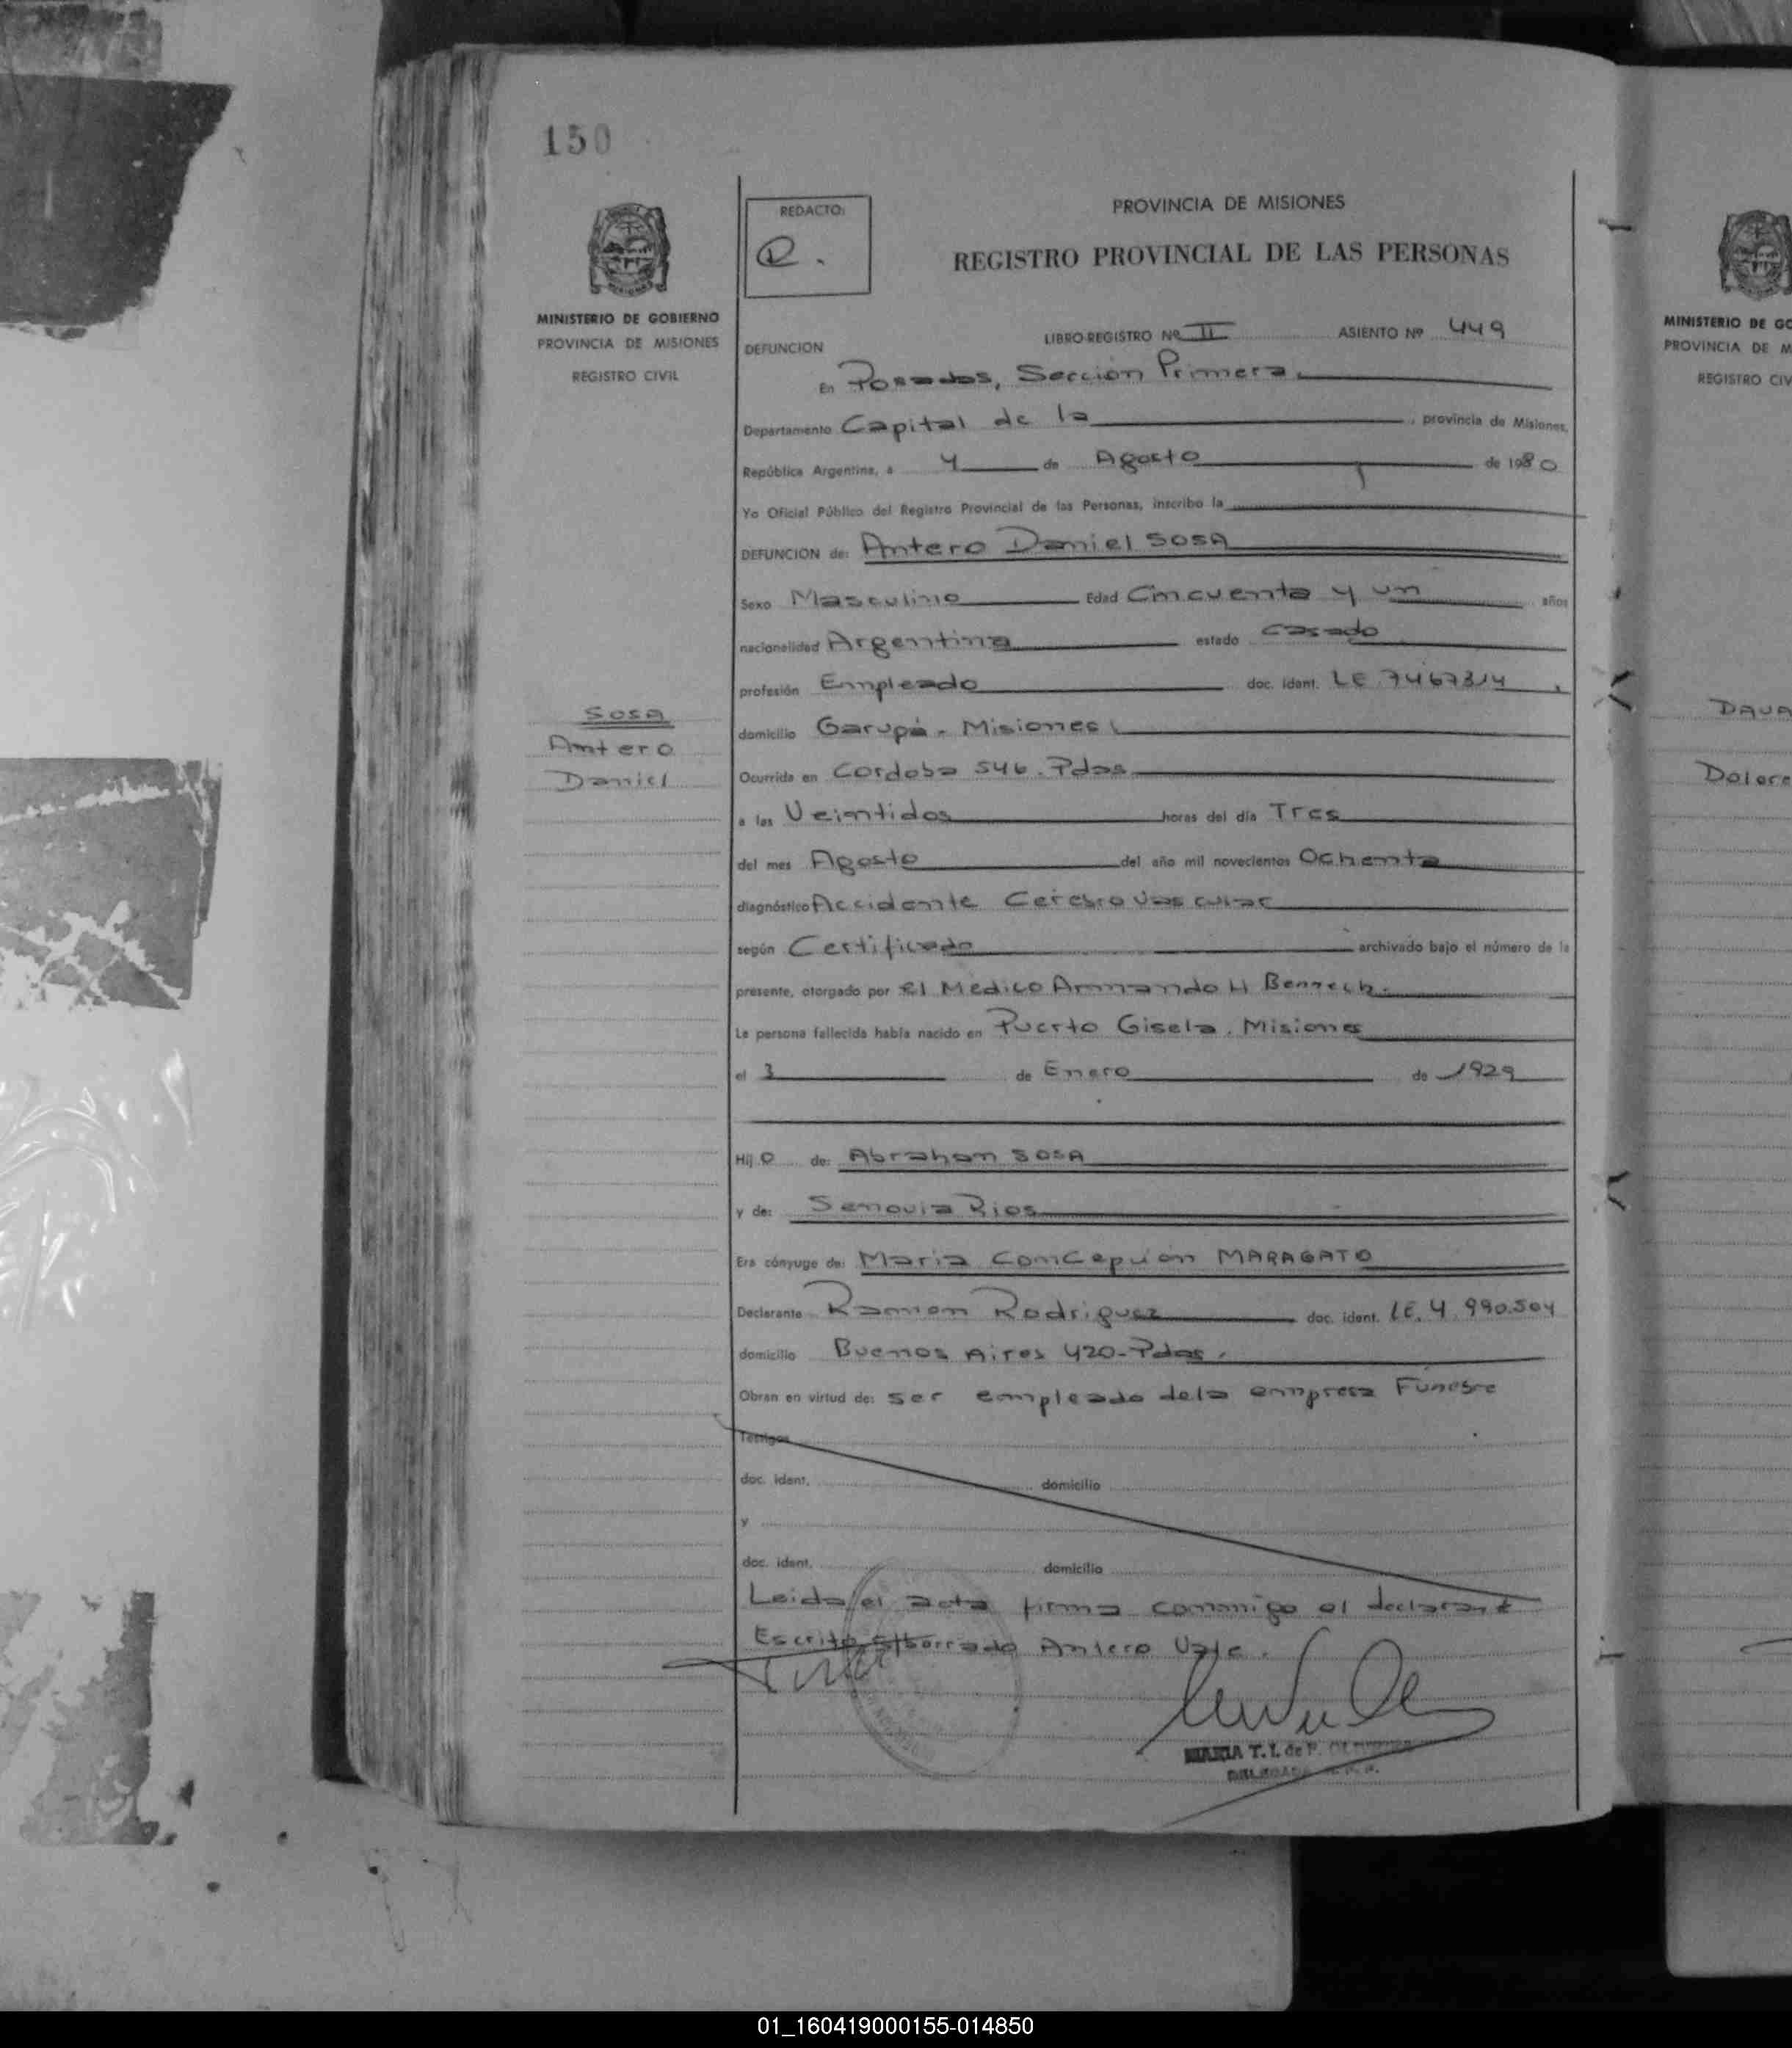 150
MINISTERIO DE GOBIERNO
PROVINCIA DE MISIONES
REGISTRO CIVIL
REDACTO:
PROVINCIA DE MISIONES
REGISTRO PROVINCIAL DE LAS PERSONAS
DEFUNCION
LIBRO-REGISTRO Nº II ASIENTO Nº 449
En Posadas, Sección Primera.
Departamento Capital de la , provincia de Misiones,
República Argentina, a 4 de Agosto de 1980
Yo Oficial Público del Registro Provincial de las Personas, inscribo la
DEFUNCION de: Antero Daniel SOSA
Sexo Masculino Edad Cincuenta y un años
nacionalidad Argentina estado casado
profesión Empleado doc. ident. LE 7467314
Sosa
Antero
Daniel
domicilio Garupá - Misiones
Ocurrida en Cordoba 546. Pdas
a las Veintidos horas del día Tres
del mes Agosto del año mil novecientos Ochenta
diagnóstico Accidente Cerebro Vascular
según Certificado archivado bajo el número de la
presente, otorgado por el Medico Armando H
La persona fallecida había nacido en Puerto Gisela. Misiones
el 3 de Enero de 1929
Hij o de: Abraham SOSA
y de: Senovia Rios
Era cónyuge de: Maria Concepción MARAGATO
Declarante Ramon Rodriguez doc. ident. LE. 4.990.504
domicilio Buenos Aires 420-Pdas.
Obran en virtud de: ser empleado dela empresa Funebre
Testigos
doc. ident. domicilio
y
doc. ident. domicilio
Leida el acta firma conmigo el declarante
Escrito s/borrado Antero Vale.
MARIA T. I. de P.
MINISTERIO DE GO
PROVINCIA DE M
REGISTRO CIV
DAVA
Dolore
01_160419000155-014850